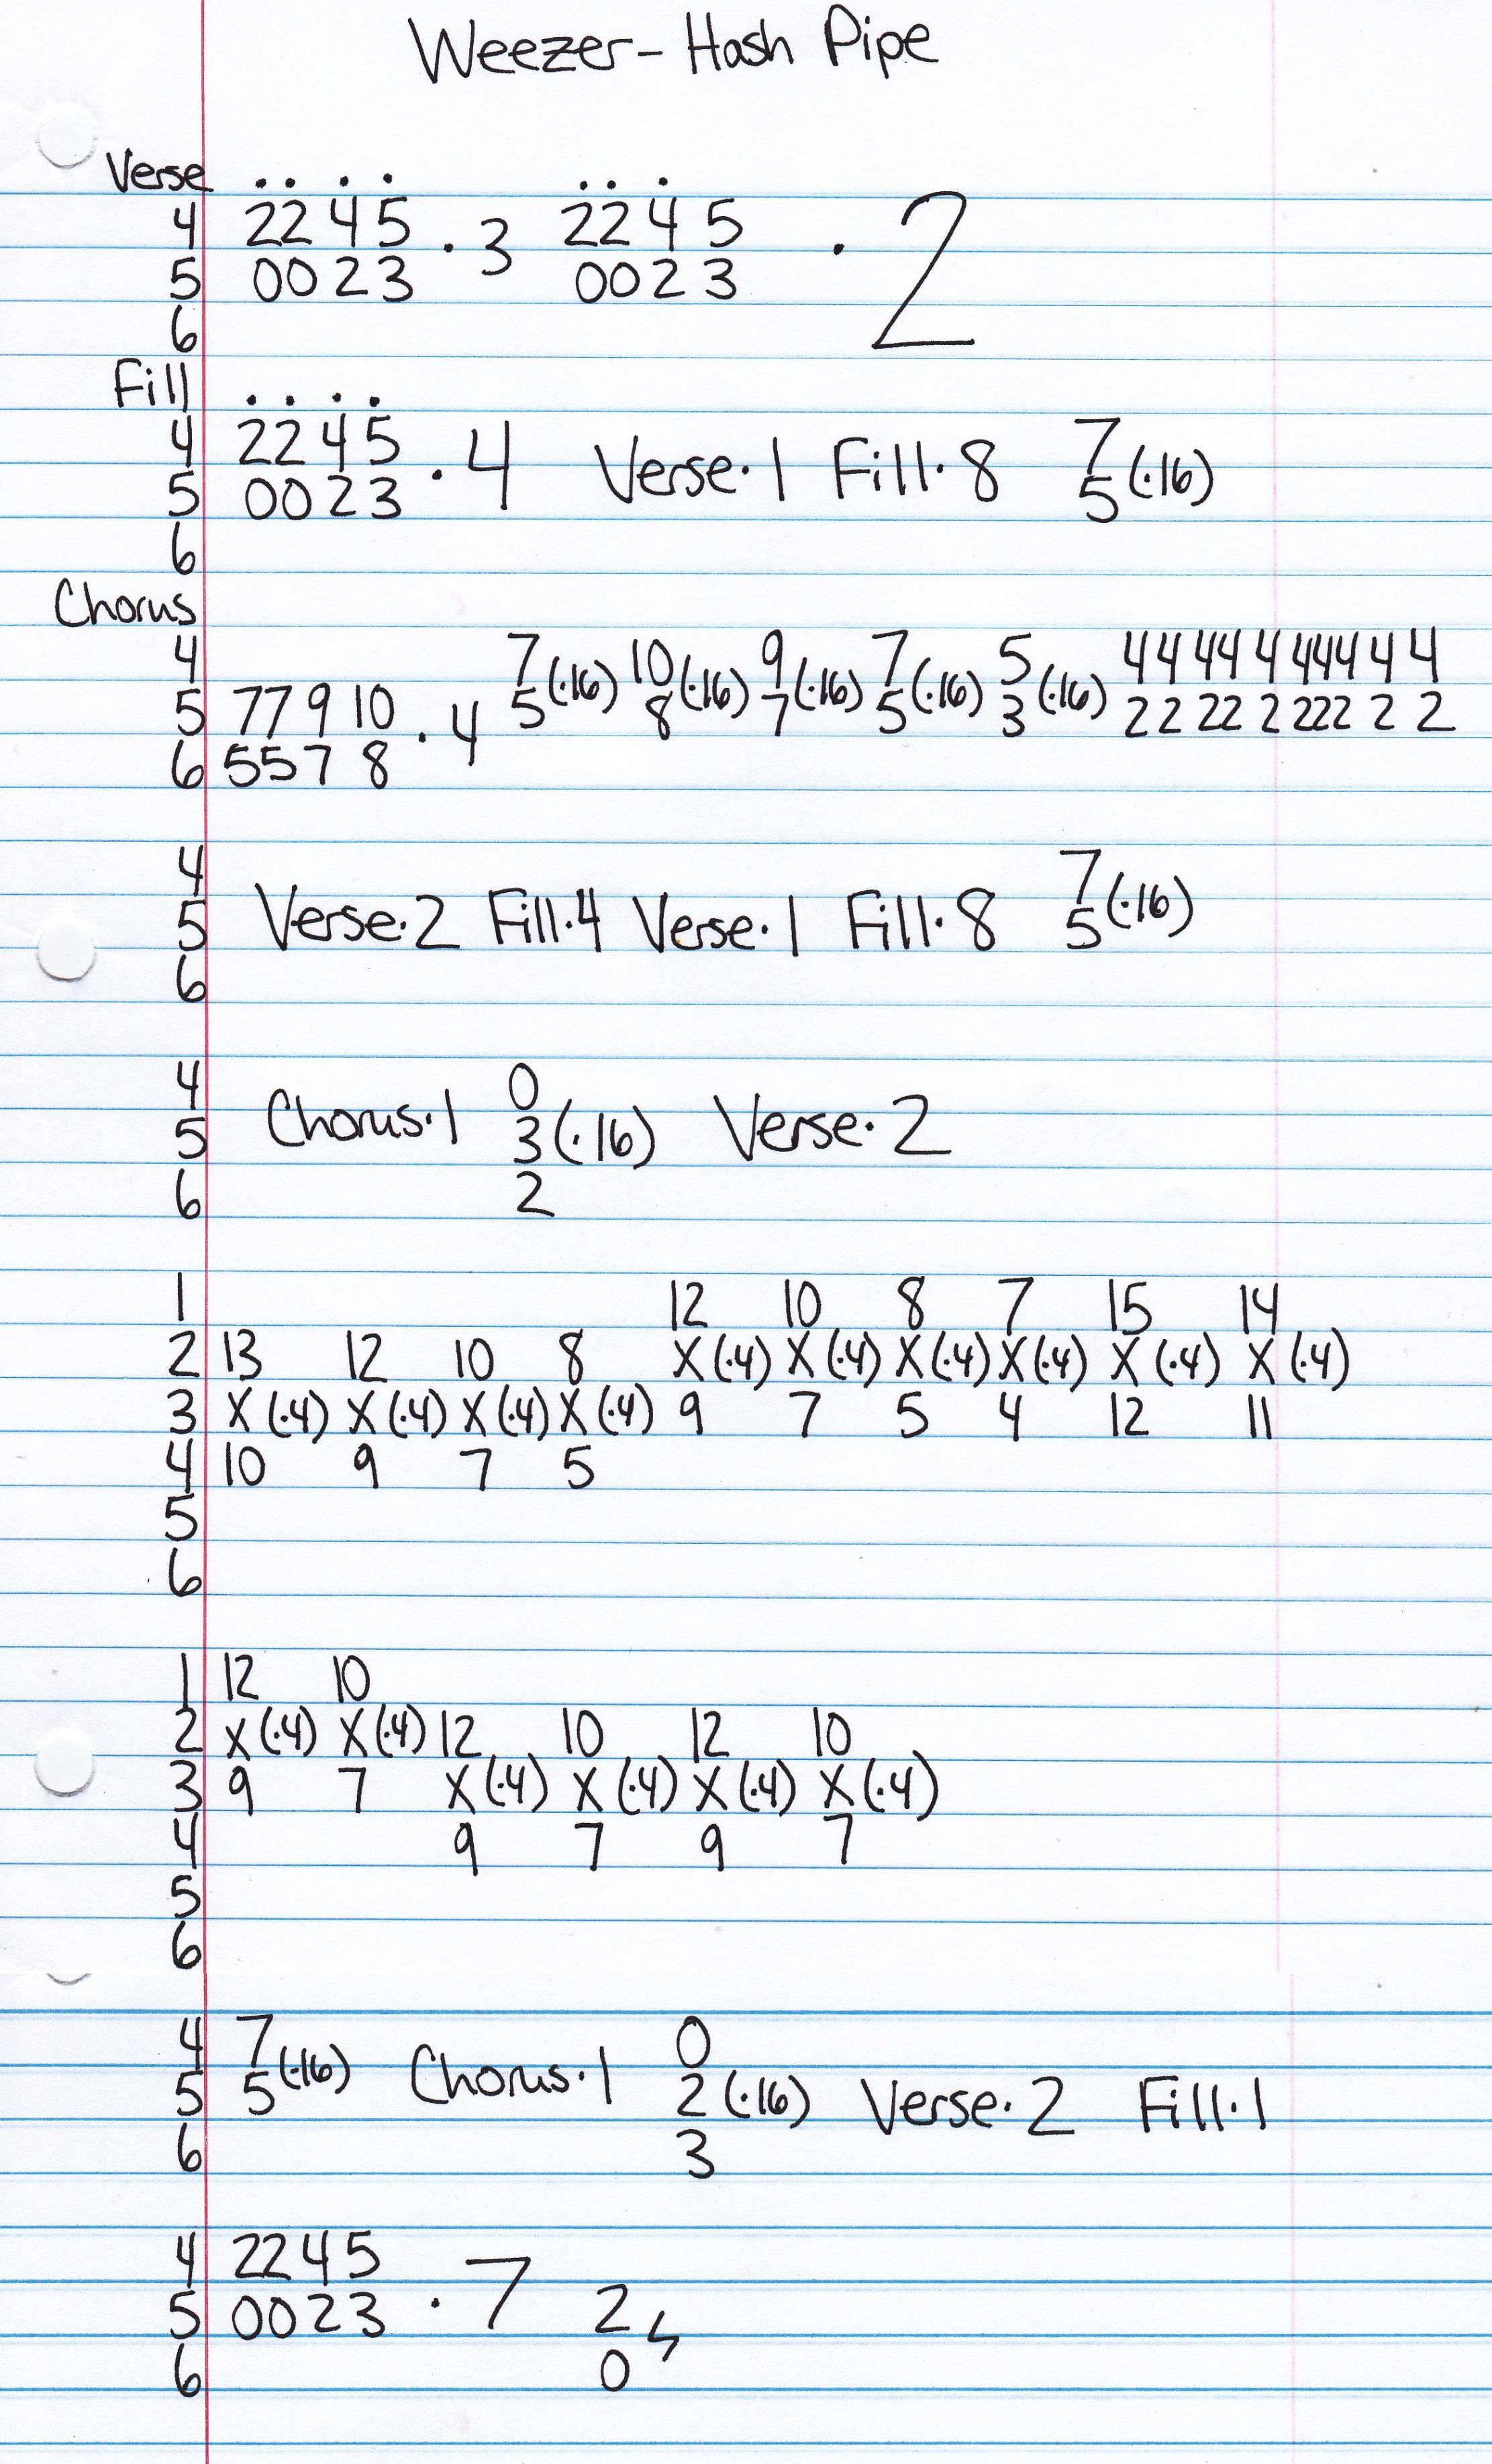 Weezer - Hash Pipe
Verse . . . . . . .
4 2 2 4 5 . 3 2 2 4 5 . 2
5 0 0 2 3 0 0 2 3
6
Fill . . . .
4 2 2 4 5 . 4 Verse · 1 Fill · 8 7
5 0 0 2 3 5 (·16)
6
Chorus
4 7 (·16) 10 (·16) 9 (·16) 7 (·16) 5 (·16) 4 4 4 4 4 4 4 4 4 4
5 7 7 9 10 . 4 5 8 7 5 3 2 2 2 2 2 2 2 2 2 2
6 5 5 7 8
4 7
5 Verse · 2 Fill · 4 Verse · 1 Fill · 8 5 (·16)
6
4 0
5 Chorus · 1 3 (·16) Verse · 2
6 2
1 12 10 8 7 15 14
2 13 12 10 8 X (·4) X (·4) X (·4) X (·4) X (·4) X (·4)
3 X (·4) X (·4) X (·4) X (·4) 9 7 5 4 12 11
4 10 9 7 5
5
6
1 12 10
2 X (·4) X (·4) 12 10 12 10
3 9 7 X (·4) X (·4) X (·4) X (·4)
4 9 7 9 7
5
6
4 7 0
5 5 (·16) Chorus · 1 2 (·16) Verse · 2 Fill · 1
6 3
4 2 2 4 5
5 0 0 2 3 . 7 2
6 0